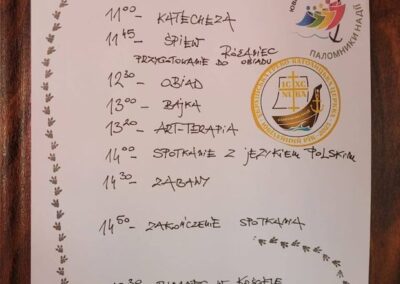 11⁰⁰ - KATECHEZA
11⁴⁵ - ŚPIEW
RÓŻANIEC
PRZYGOTOWANIE DO OBIADU
12³⁰ - OBIAD
13⁰⁰ - BAJKA
13²⁰ - ART-TERAPIA
14⁰⁰ - SPOTKANIE Z JĘZYKIEM POLSKIM
14³⁰ - ZABAWY
14⁵⁰ - ZAKOŃCZENIE SPOTKANIA
ПАЛОМНИКИ НАДІЇ
IC XC
NI KA